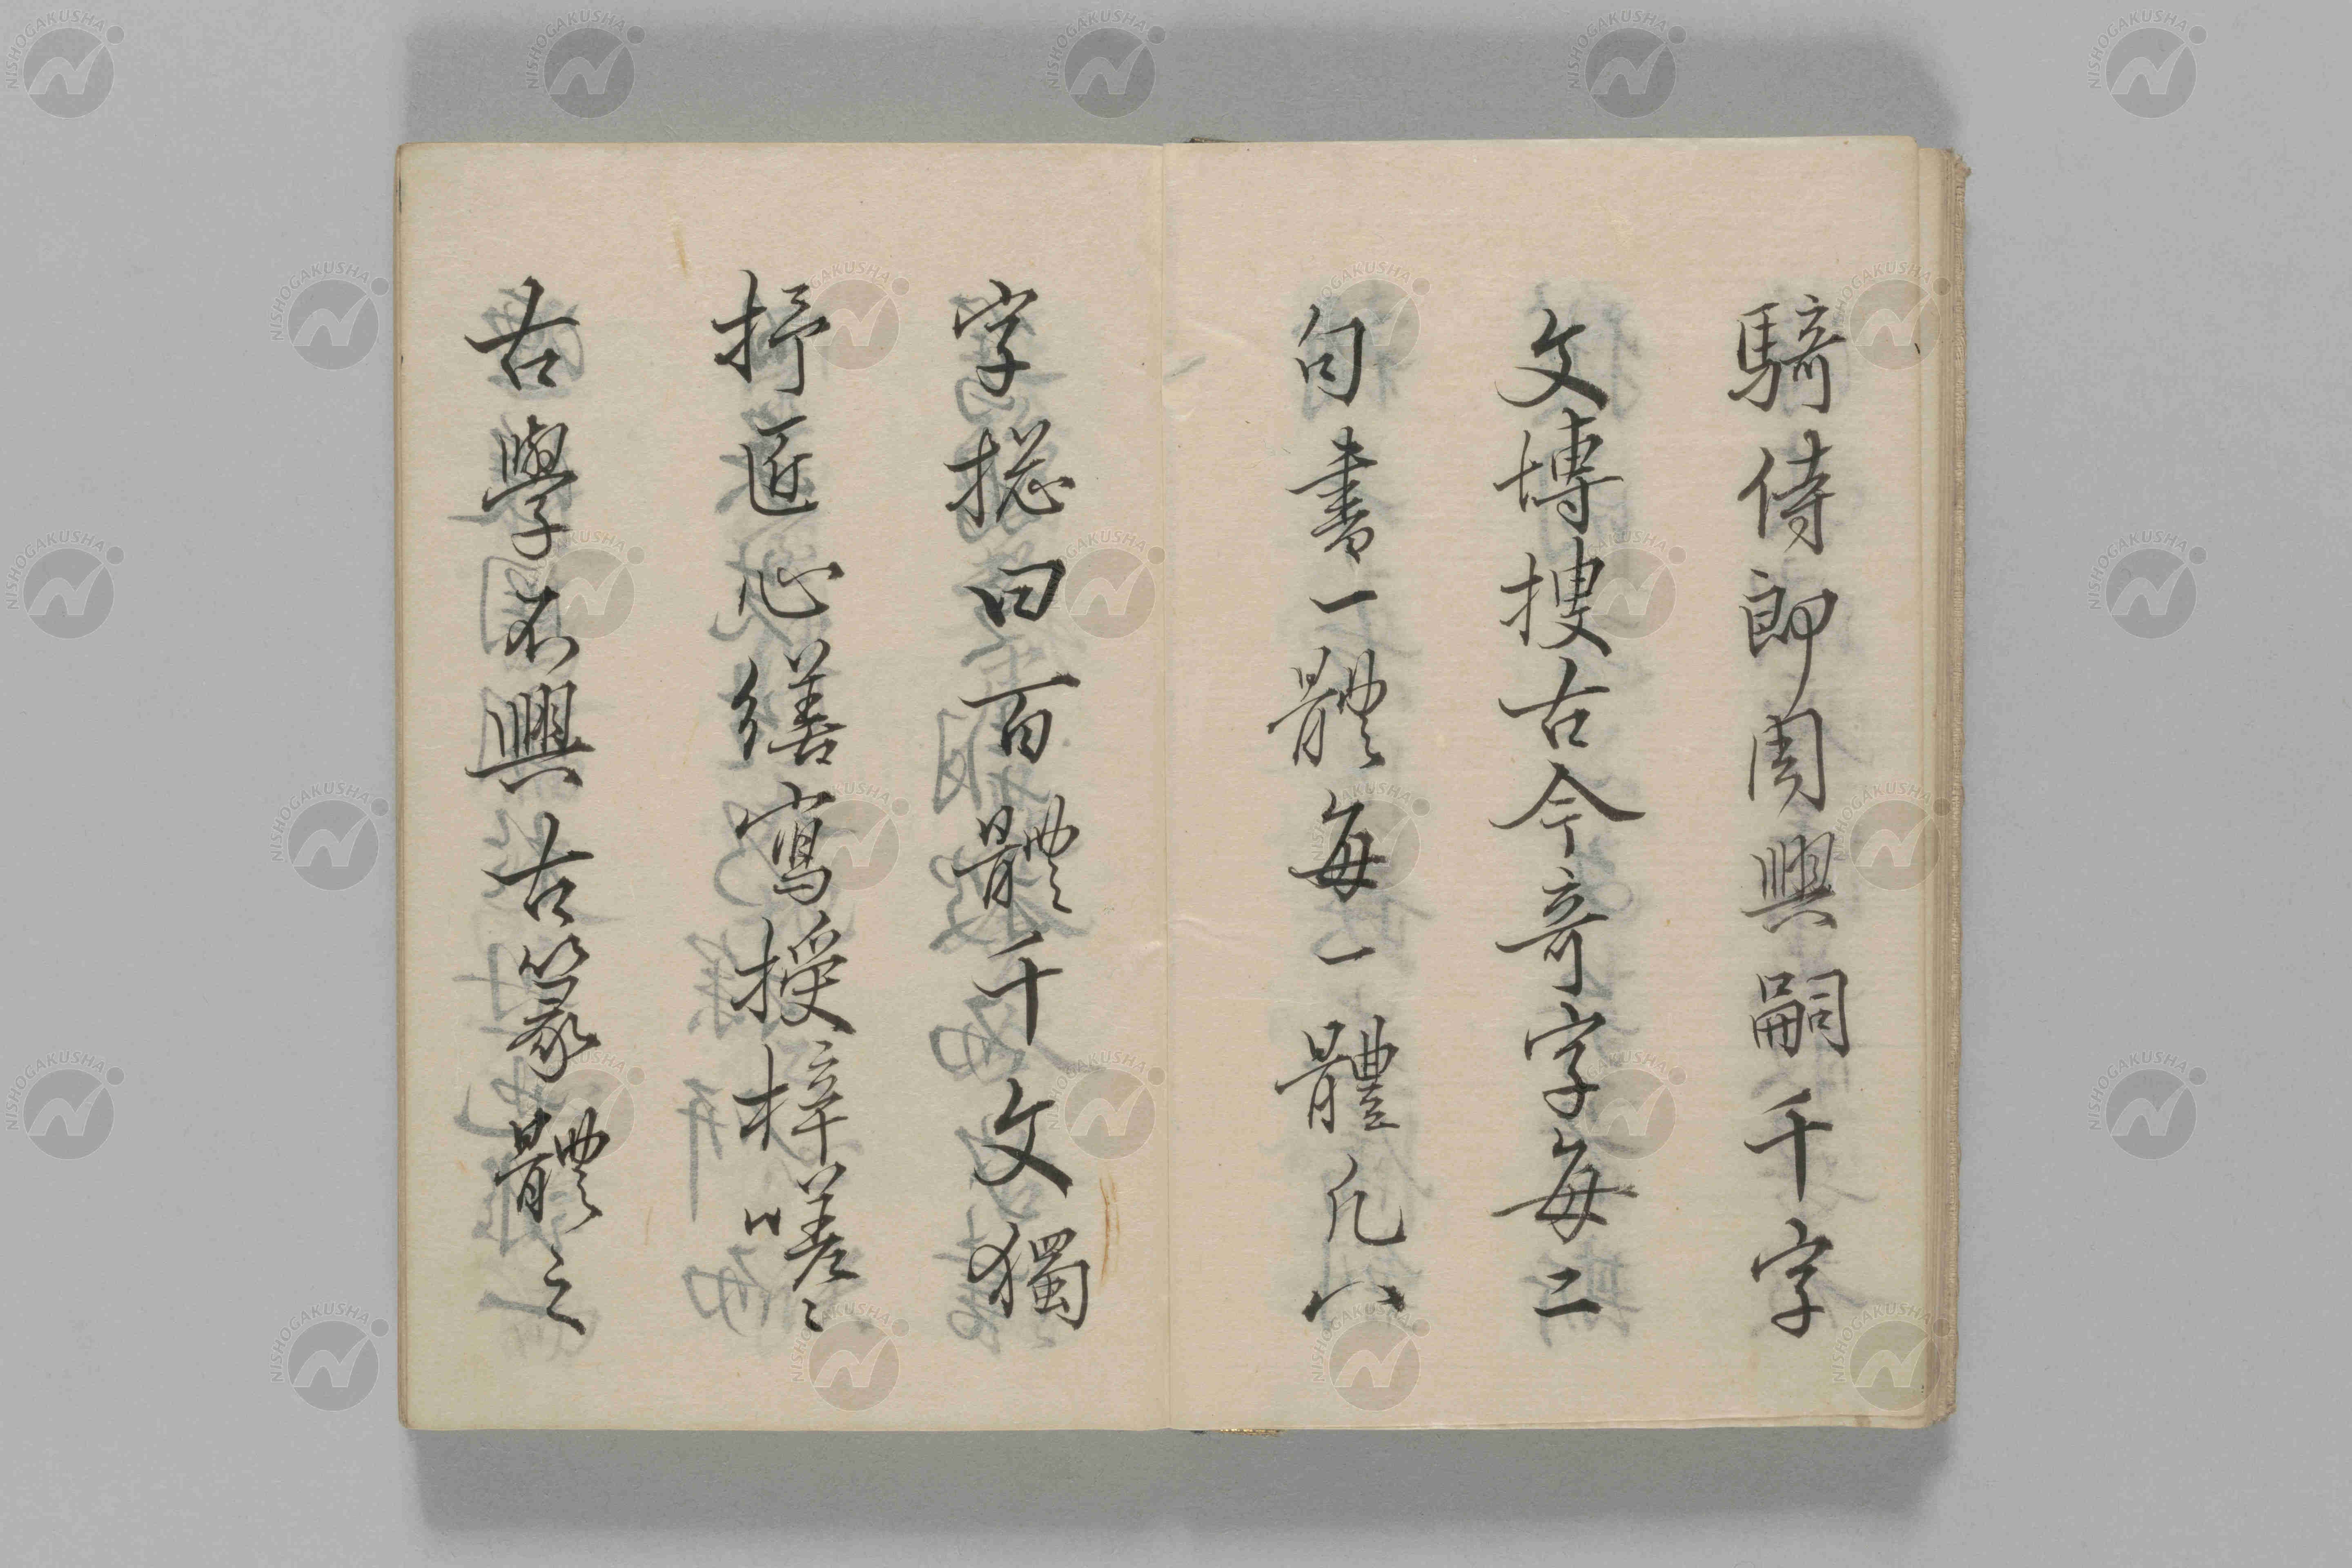 騎侍郎周興嗣千字
文博搜古今奇字每二
句書一體每一體凡八
字揔曰百體千文獨
抒匠心繕寫授梓嗟〻
古學不興古篆體之